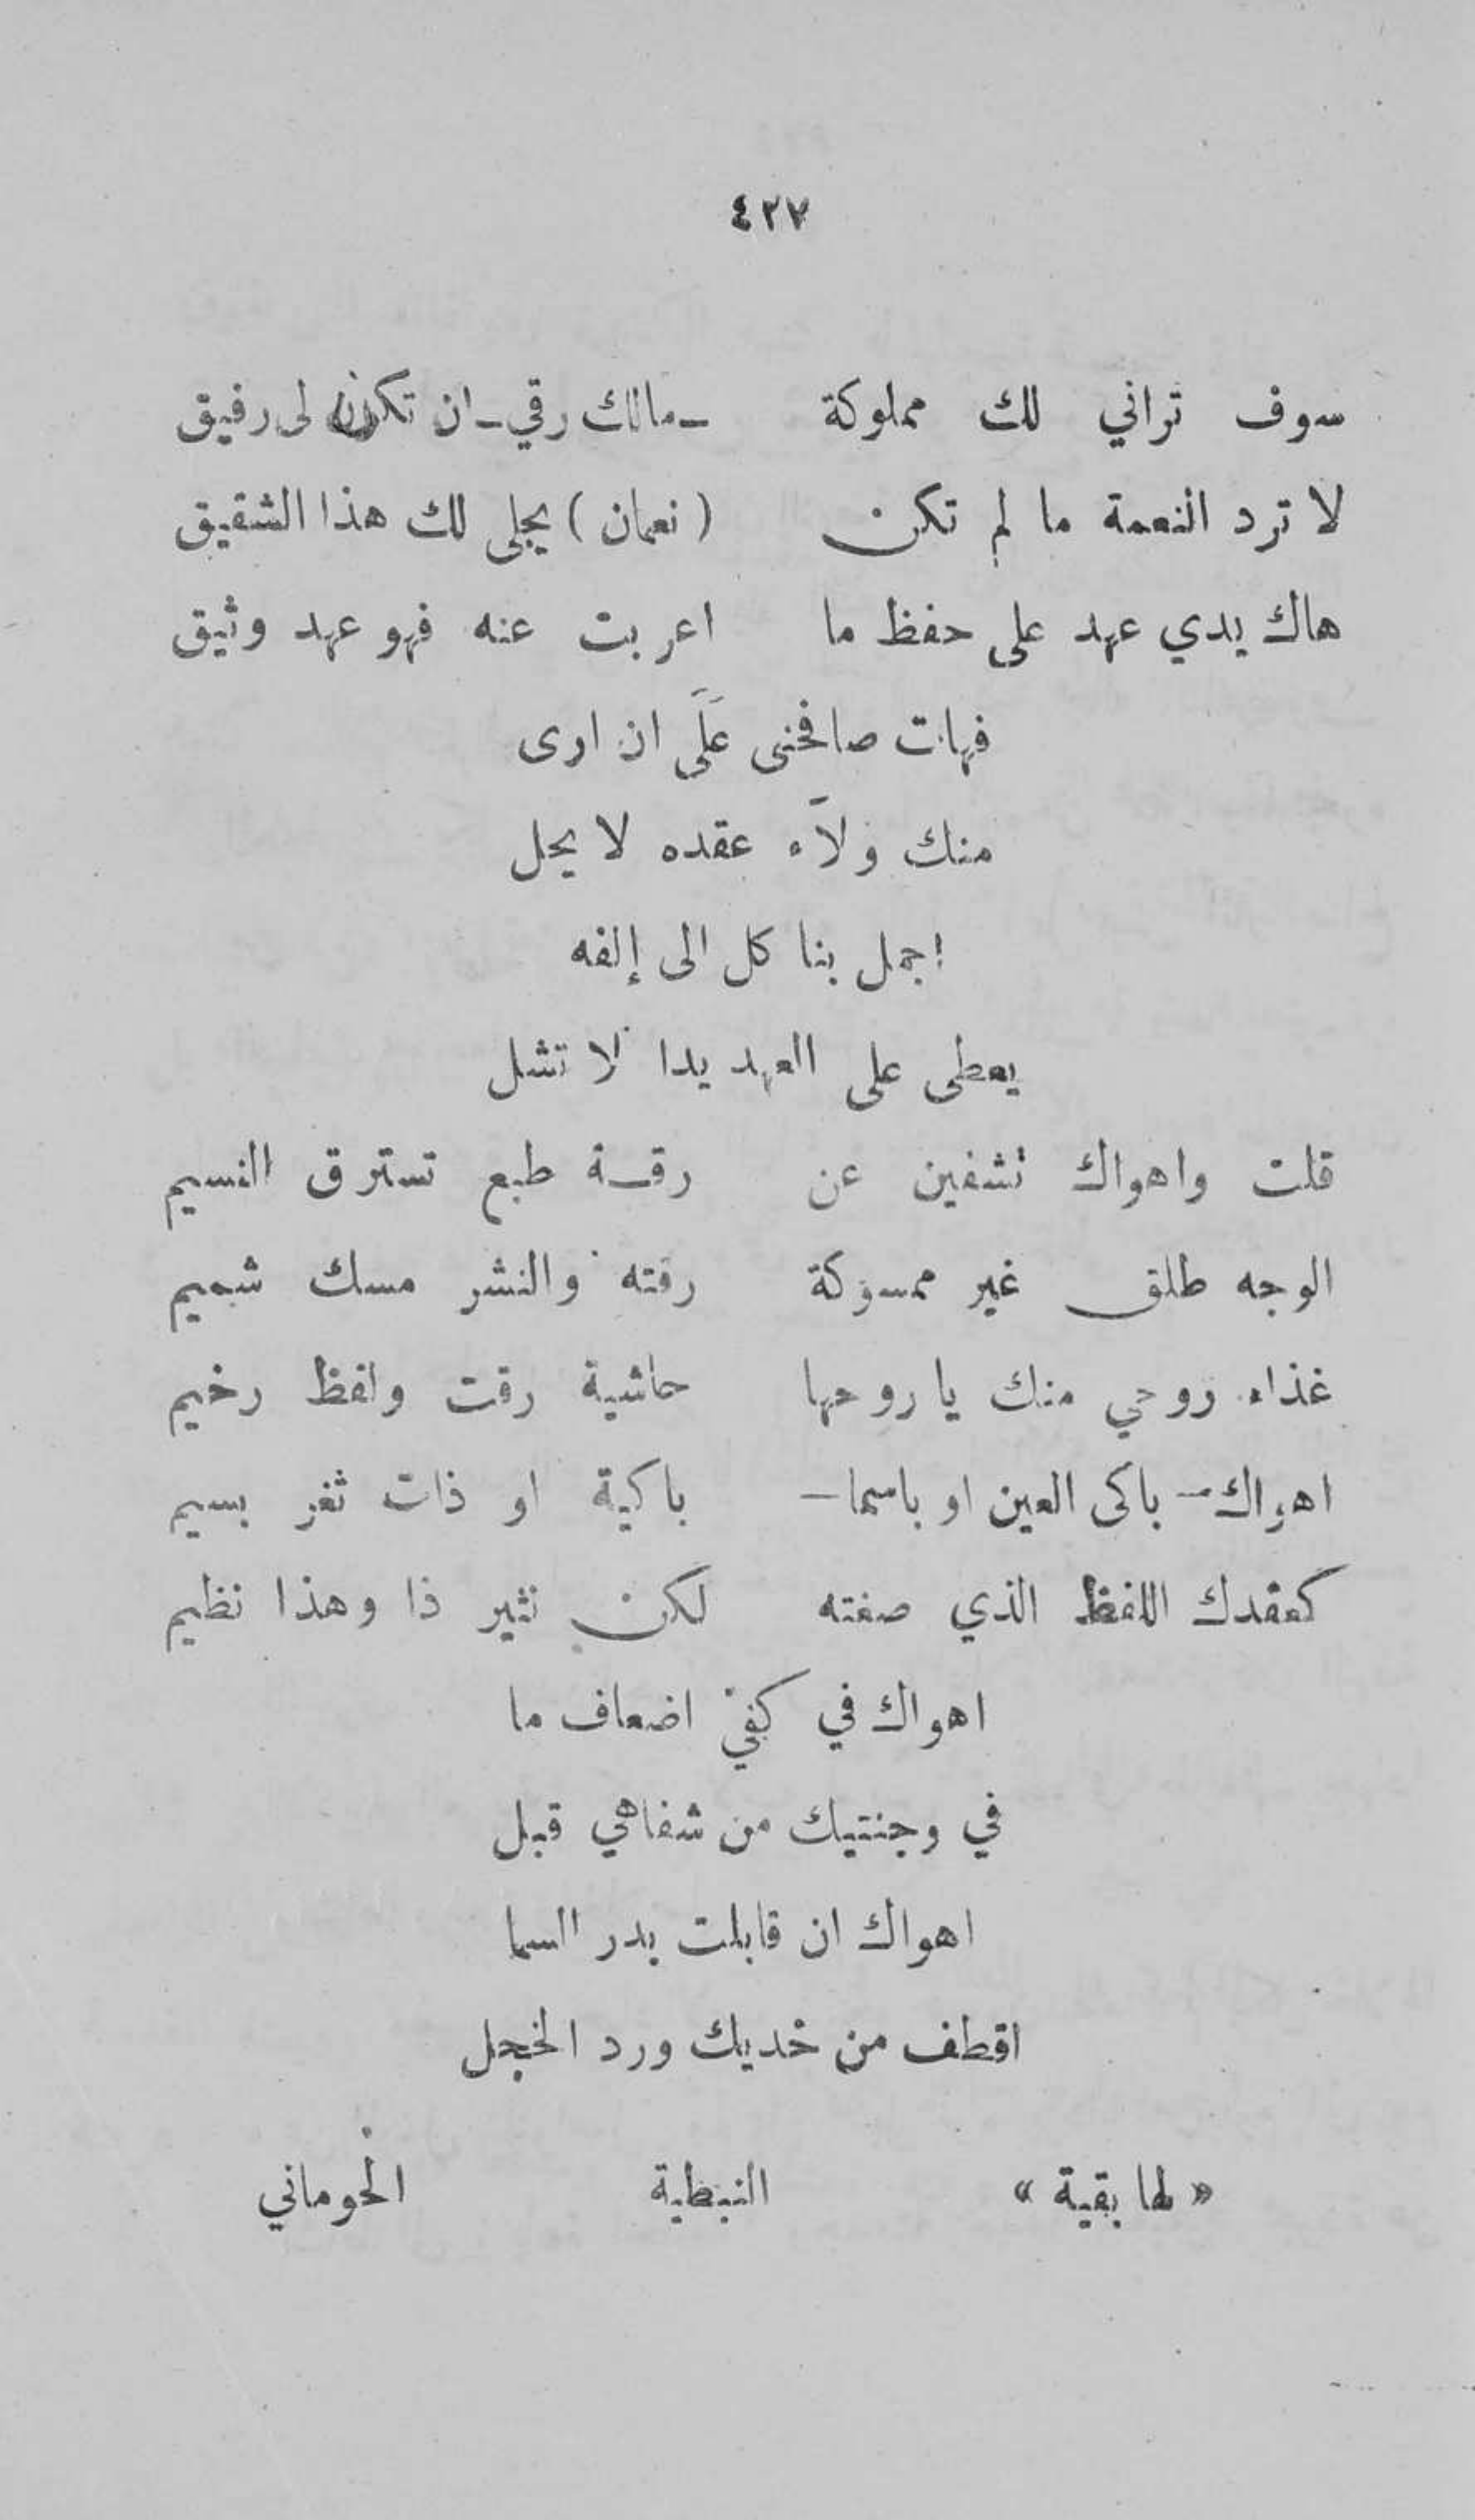 ٤٢٧
سوف تراني لك مملوكة ـ مالك رقي ـ ان تكون لى رفيق
لا ترد النعمة ما لم تكن (نعمان) يجلى لك هذا الشقيق
هاك يدي عهد على حفظ ما اعربت عنه فهو عهد وثيق
فهات صافحنى عَلَى ان ارى
منك ولآء عقده لا يحل
اجمل بنا كل الى إلفه
يعطى على العهد يدا لا تشل
قلت واهواك تشفين عن رقة طبع تسترق النسيم
الوجه طلق غير ممسوكة رقته والنشر مسك شميم
غذاء روحي منك يا روحها حاشية رقت ولفظ رخيم
اهواك — باكى العين او باسما — باكية او ذات ثغر بسيم
كعقدك اللفظ الذي صغته لكن نثير ذا وهذا نظيم
اهواك في كفيّ اضعاف ما
في وجنتيك من شفاهي قبل
اهواك ان قابلت بدر السما
اقطف من خديك ورد الخجل
« لها بقية » النبطية الحوماني